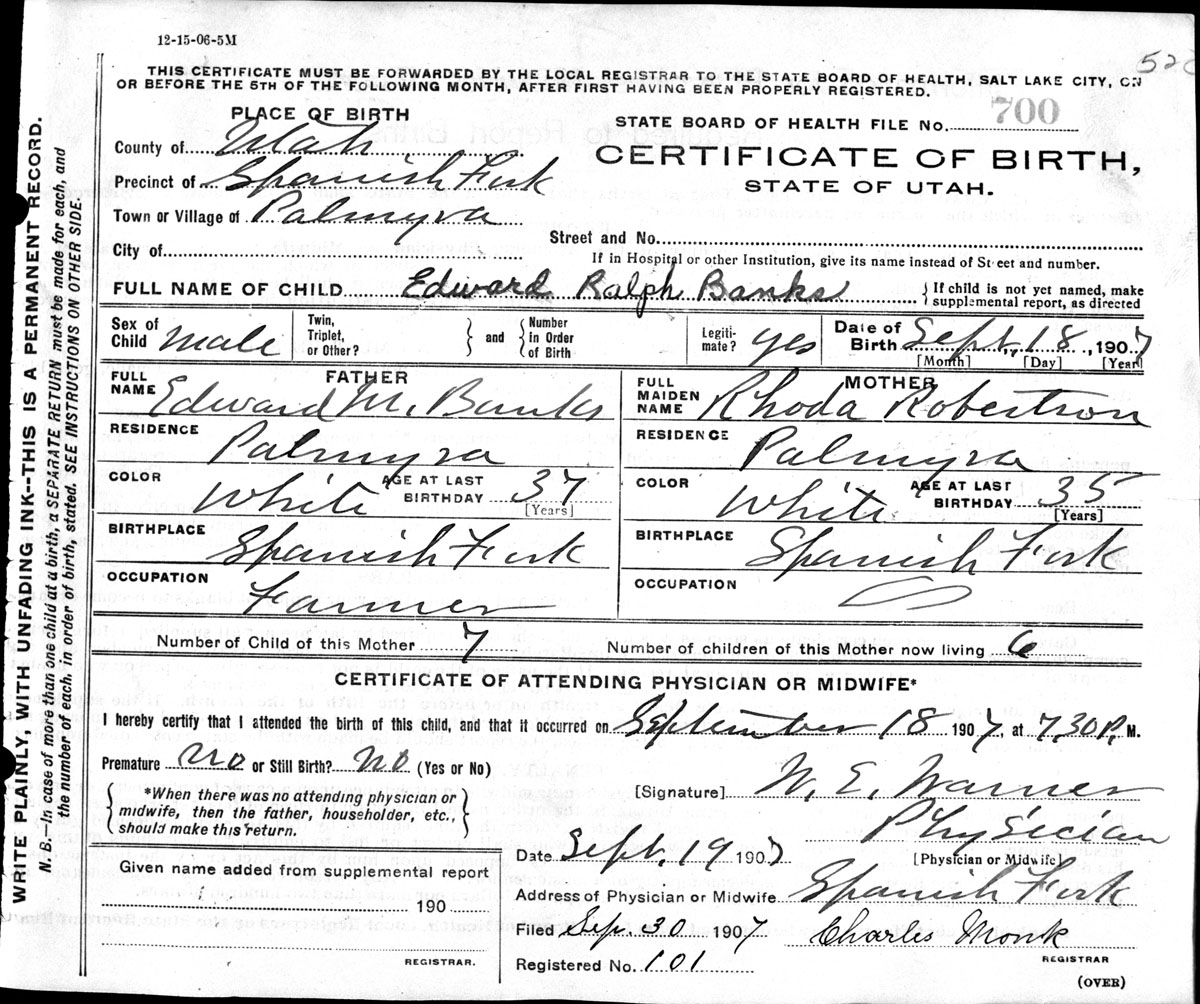 12-15-06-5M
THIS CERTIFICATE MUST BE FORWARDED BY THE LOCAL REGISTRAR TO THE STATE BOARD OF HEALTH, SALT LAKE CITY, ON
OR BEFORE THE 5TH OF THE FOLLOWING MONTH, AFTER FIRST HAVING BEEN PROPERLY REGISTERED.
PLACE OF BIRTH
County of Utah
Precinct of Spanish Fork
Town or Village of Palmyra
City of
STATE BOARD OF HEALTH FILE No. 700
CERTIFICATE OF BIRTH,
STATE OF UTAH.
Street and No.
If in Hospital or other Institution, give its name instead of Street and number.
FULL NAME OF CHILD Edward Ralph Banks
If child is not yet named, make
supplemental report, as directed
Sex of
Child Male
Twin,
Triplet,
or Other?
and
Number
in Order
of Birth
Legiti-
mate? yes
Date of
Birth Sept. 18, 1907
[Month] [Day] [Year]
FATHER
FULL
NAME Edward M. Banks
RESIDENCE Palmyra
COLOR White
AGE AT LAST
BIRTHDAY 37
[Years]
BIRTHPLACE Spanish Fork
OCCUPATION Farmer
MOTHER
FULL
MAIDEN
NAME Rhoda Robertson
RESIDENCE Palmyra
COLOR White
AGE AT LAST
BIRTHDAY 35
[Years]
BIRTHPLACE Spanish Fork
OCCUPATION
Number of Child of this Mother 7
Number of children of this Mother now living 6
CERTIFICATE OF ATTENDING PHYSICIAN OR MIDWIFE*
I hereby certify that I attended the birth of this child, and that it occurred on September 18 1907, at 7.30 P. M.
Premature No or Still Birth? No (Yes or No)
*When there was no attending physician or
midwife, then the father, householder, etc.,
should make this return.
[Signature] W. E. Warner
Physician
[Physician or Midwife]
Date Sept. 19 1907
Address of Physician or Midwife Spanish Fork
Filed Sep. 30 1907 Charles Monk
REGISTRAR
Registered No. 101
(OVER)
Given name added from supplemental report
190
REGISTRAR.
WRITE PLAINLY, WITH UNFADING INK--THIS IS A PERMANENT RECORD.
N. B.—In case of more than one child at a birth, a SEPARATE RETURN must be made for each, and
the number of each, in order of birth, stated. SEE INSTRUCTIONS ON OTHER SIDE.